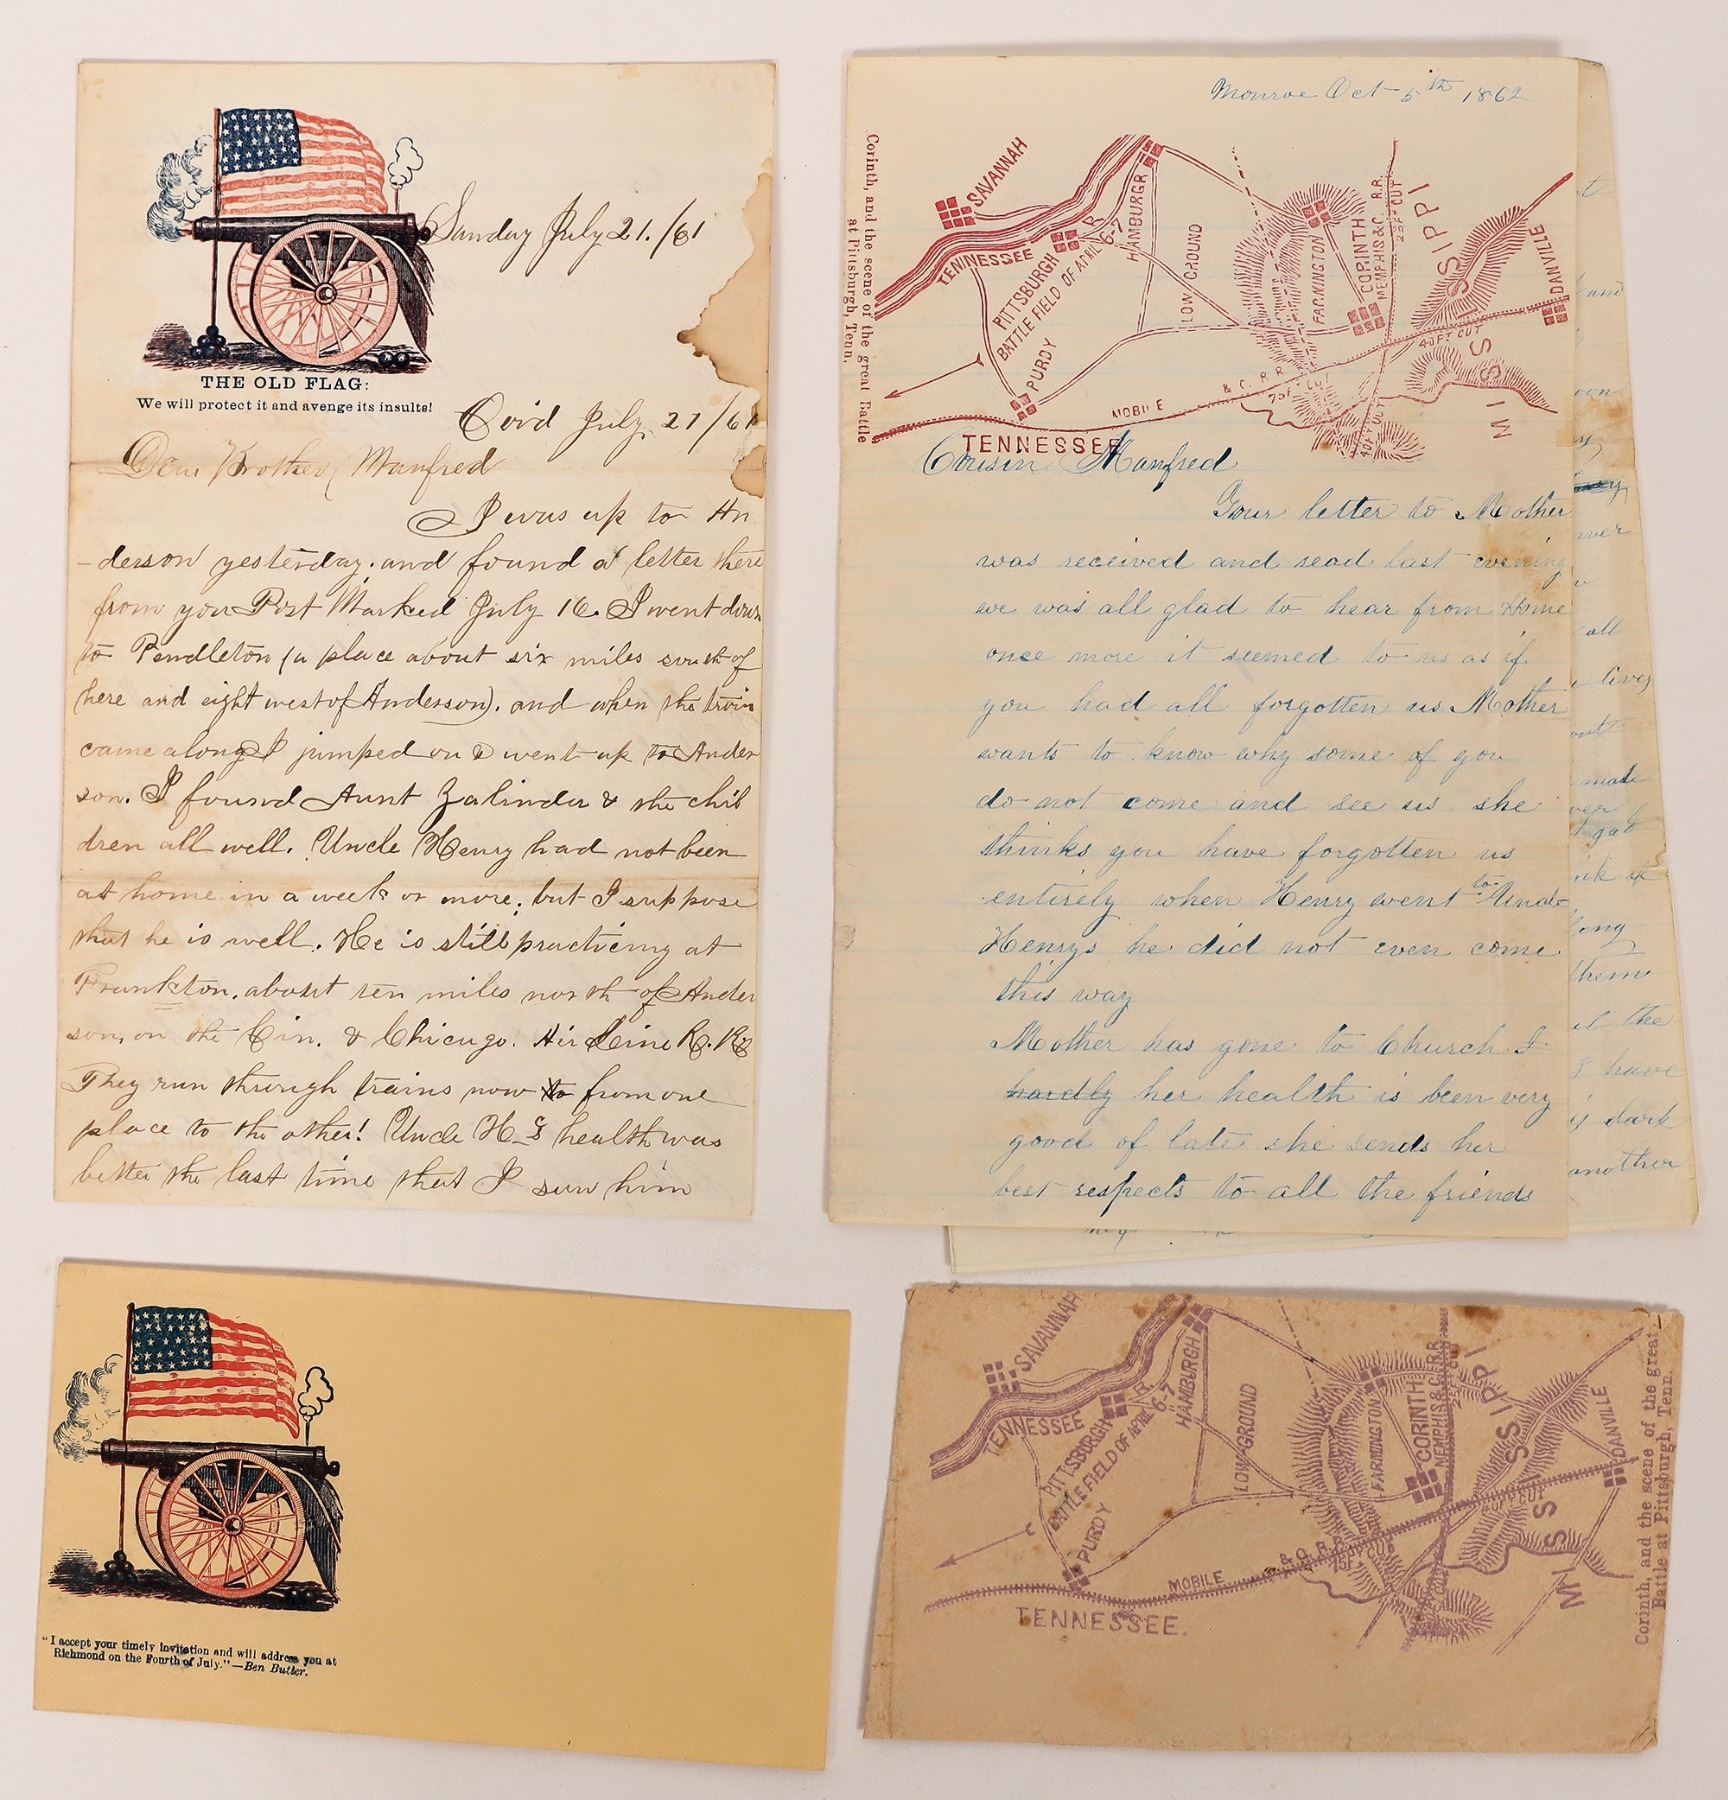 Sunday July 21./61
THE OLD FLAG:
We will protect it and avenge its insults!
Rec'd July 27/61
Dear Brother Manfred
I was up to An
-derson yesterday. and found a letter there
from you Post Marked July 16. I went down
to Pendleton (a place about six miles south of
here and eight west of Anderson). and when the train
came along I jumped on & went up to Ander
son. I found Aunt Zalinda & the chil
dren all well. Uncle Henry had not been
at home in a week or more; but I suppose
that he is well. He is still practicing at
Frankton, about ten miles north of Ander
son, on the Cin. & Chicago. Air Line R. R.
They run through trains now to from one
place to the other! Uncle H_s health was
better the last time that I saw him
Monroe Oct 5th 1862
Corinth, and the scene of the great Battle
at Pittsburgh, Tenn.
SAVANNAH
TENNESSEE R.
PITTSBURGH
BATTLE FIELD OF APRIL 6-7
HAMBURGR
PURDY
LOW GROUND
FARMINGTON
CORINTH
MEMPHIS & C. R.R.
25 FT CUT
MISSISSIPPI
DANVILLE
40 FT CUT
MOBILE & C. R. R.
75 FT CUT
40 FT CUT
TENNESSEE
Cousin Manfred
Your letter to Mother
was received and read last evening
we was all glad to hear from Home
once more it seemed to us as if
you had all forgotten us Mother
wants to know why some of you
do not come and see us she
thinks you have forgotten us
entirely when Henry went to Uncle
Henrys he did not even come
this way
Mother has gone to Church I
hardly her health is been very
good of late she sends her
best respects to all the friends
and
oon
ever
all
lives
made
ver
got
long
them
the
have
is dark
another
"I accept your timely invitation and will address you at
Richmond on the Fourth of July."—Ben Butler.
SAVANNAH
TENNESSEE R.
PITTSBURGH
BATTLE FIELD OF APRIL 6-7
HAMBURGH
PURDY
LOW GROUND
FARMINGTON
CORINTH
MEMPHIS & C. R.R.
25 FT CUT
MISSISSIPPI
DANVILLE
40 FT CUT
MOBILE & O. R. R.
75 FT CUT
TENNESSEE.
Corinth, and the scene of the great
Battle at Pittsburgh, Tenn.